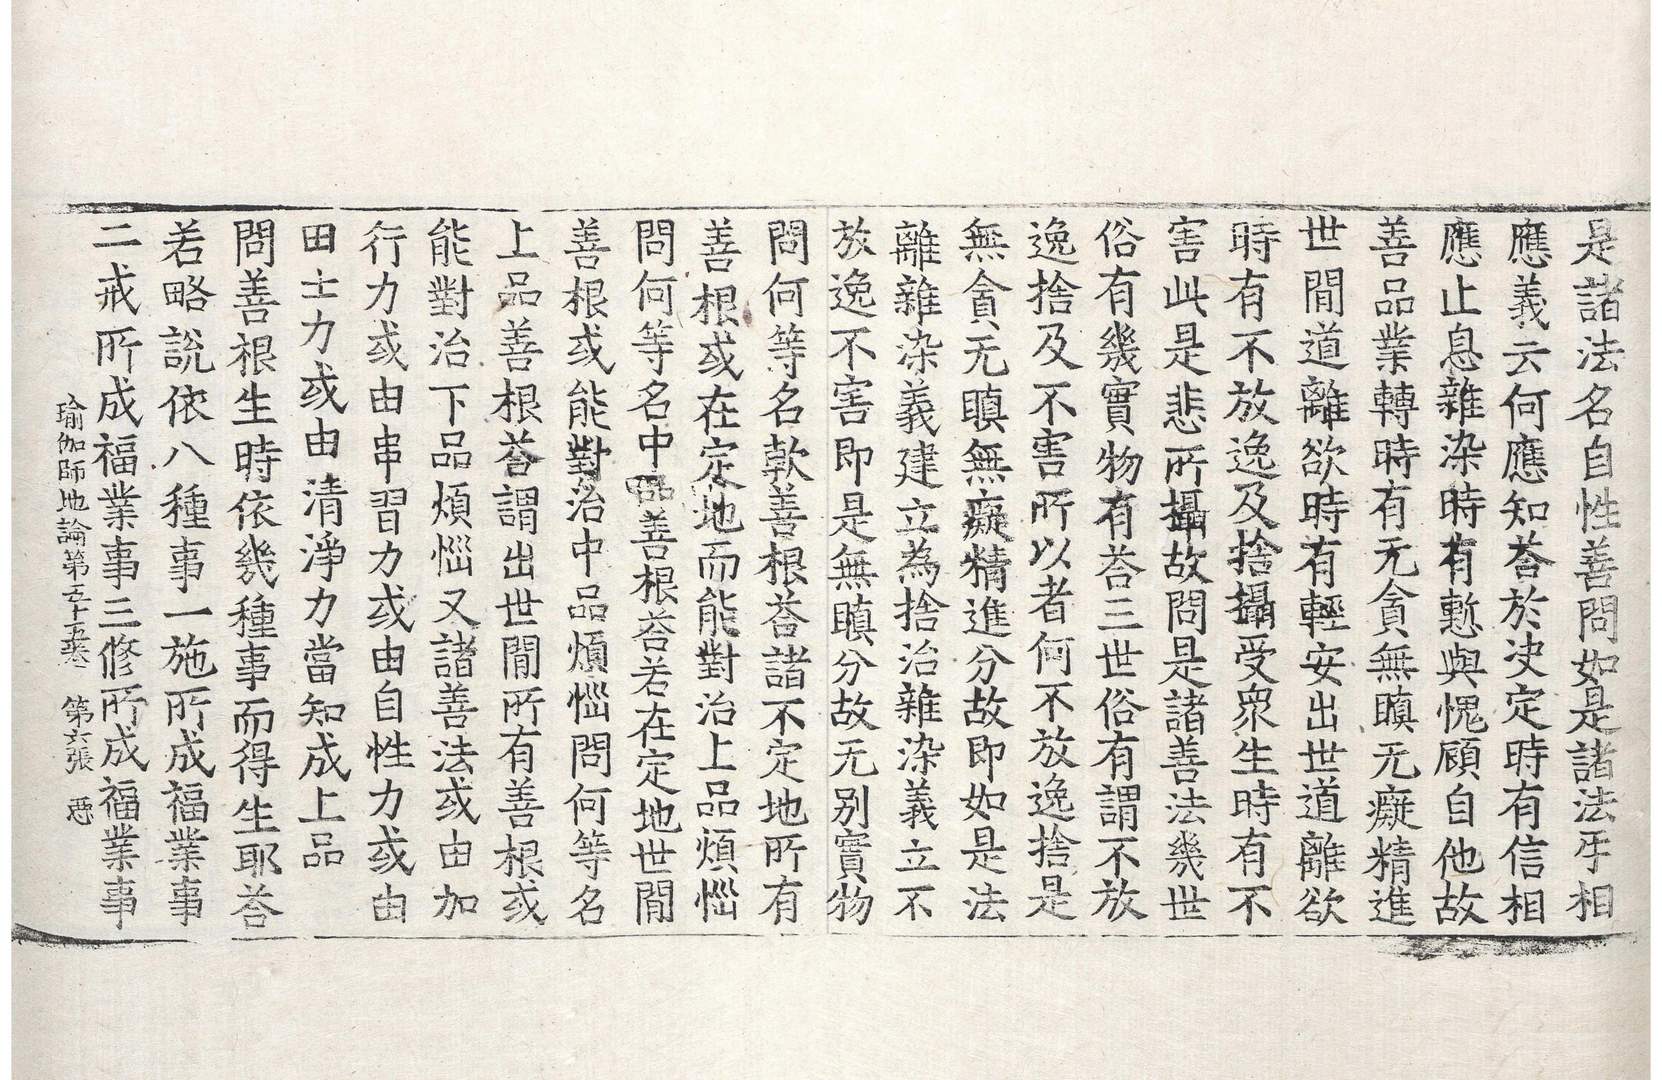 是諸法名自性善問如是諸法㸦相
應義云何應知荅於决定時有信相
應止息雜染時有慙與愧顧自他故
善品業轉時有无貪無瞋无癡精進
世間道離欲時有輕安出世道離欲
時有不放逸及捨攝受衆生時有不
害此是悲所攝故問是諸善法幾世
俗有幾實物有荅三世俗有謂不放
逸捨及不害所以者何不放逸捨是
無貪无瞋無癡精進分故即如是法
離雜染義建立為捨治雜染義立不
放逸不害即是無瞋分故无別實物
問何等名耎善根荅諸不定地所有
善根或在定地而能對治上品煩惱
問何等名中品善根荅若在定地世間
善根或能對治中品煩惱問何等名
上品善根荅謂出世間所有善根或
能對治下品煩惱又諸善法或由加
行力或由串習力或由自性力或由
田士力或由清淨力當知成上品
問善根生時依幾種事而得生耶荅
若略說依八種事一施所成福業事
二戒所成福業事三修所成福業事
瑜伽師地論第五十五卷 第六張 惡